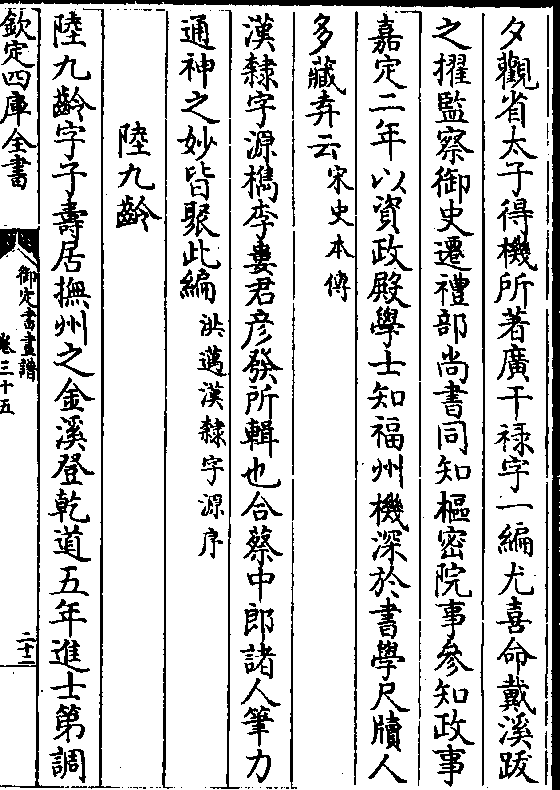 夕觀省太子得機所著廣干禄字一編尤喜命戴溪跋
之擢監察御史遷禮部尚書同知樞密院事參知政事
嘉定二年以資政殿學士知福州機深於書學尺牘人
多藏弆云宋史本傳
漢隸字源檇李婁君彦發所輯也合蔡中郎諸人筆力
通神之妙皆聚此編洪邁漢隸字源序
陸九齡
陸九齡字子壽居撫州之金溪登乾道五年進士第調
欽定四庫全書
御定書畫譜
卷三十五
二十二